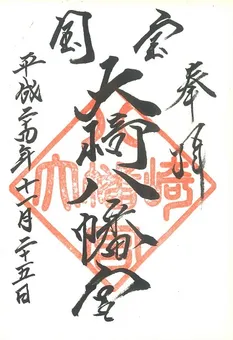 奉拝
国宝
大崎八幡宮
平成二十四年十一月二十五日
大崎八幡宮